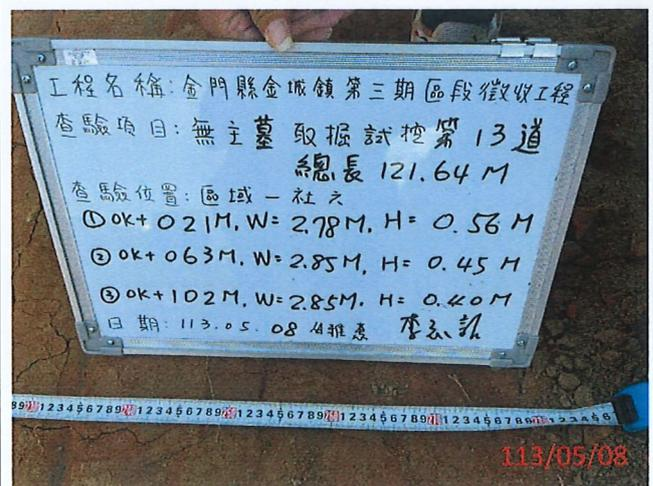 工程名稱:金門縣金城鎮第三期區段徵收工程
查驗項目:無主墓 取掘試挖第13道
總長 121.64 M
查驗位置:區域一社六
①0K+021M, W=2.78M, H=0.56 M
②0K+063M, W=2.85M, H=0.45 M
③0K+102M, W=2.85M. H=0.40M
日期:113.05.08
113/05/08